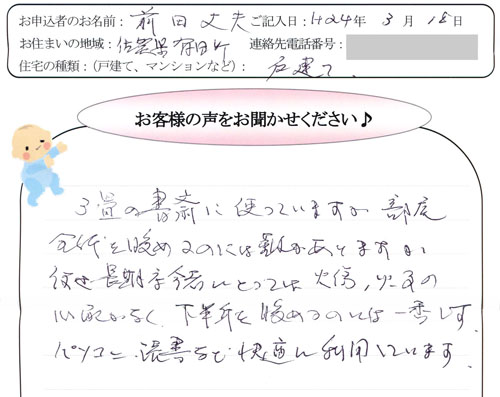 お申込者のお名前：前田丈夫 ご記入日：H24年 3月 18日
お住まいの地域：佐賀県有田町 連絡先電話番号：
住宅の種類：（戸建て、マンションなど）： 戸建て
お客様の声をお聞かせください♪
3畳の書斎に使っていますが 部屋
全体を暖めるのには難がありますが
後期高齢者にとっては火傷、火事の
心配がなく、下半身を暖めるのには一番です
パソコン、読書など快適に利用しています